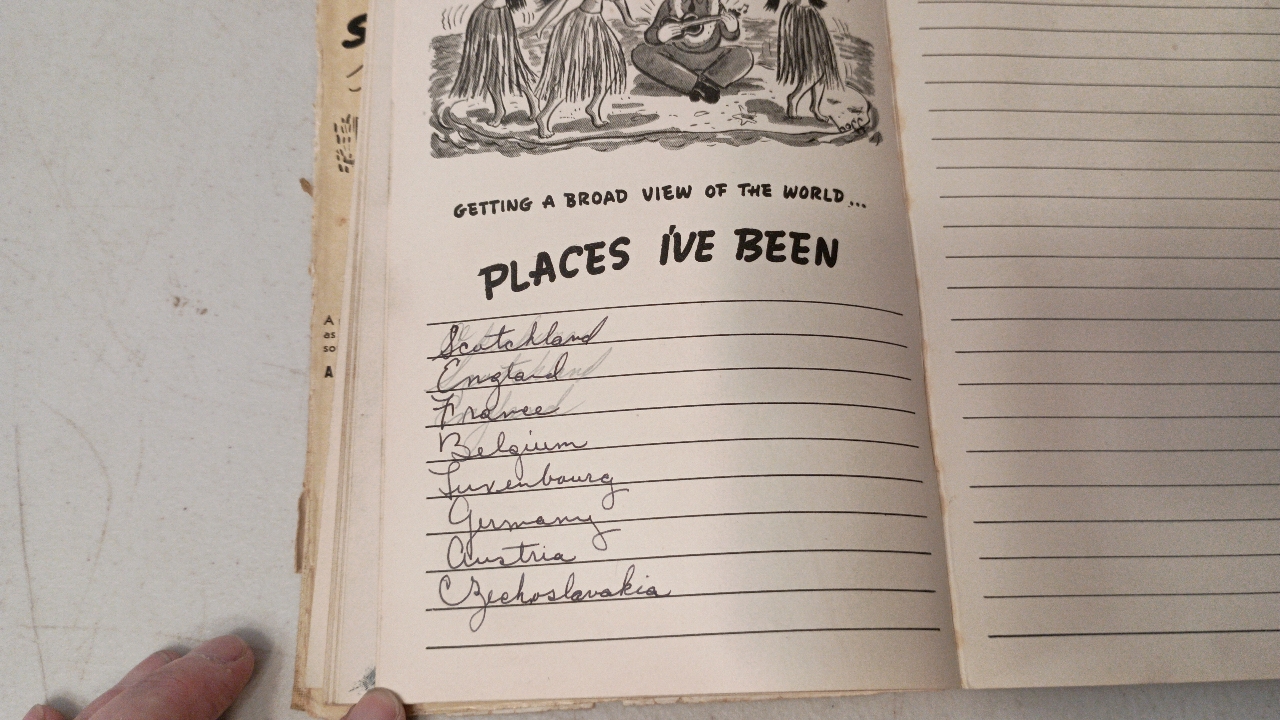 S
A
as
so
A
GETTING A BROAD VIEW OF THE WORLD...
PLACES I'VE BEEN
Scotchland
England
France
Belgium
Luxenbourg
Germany
Austria
Czechoslavakia